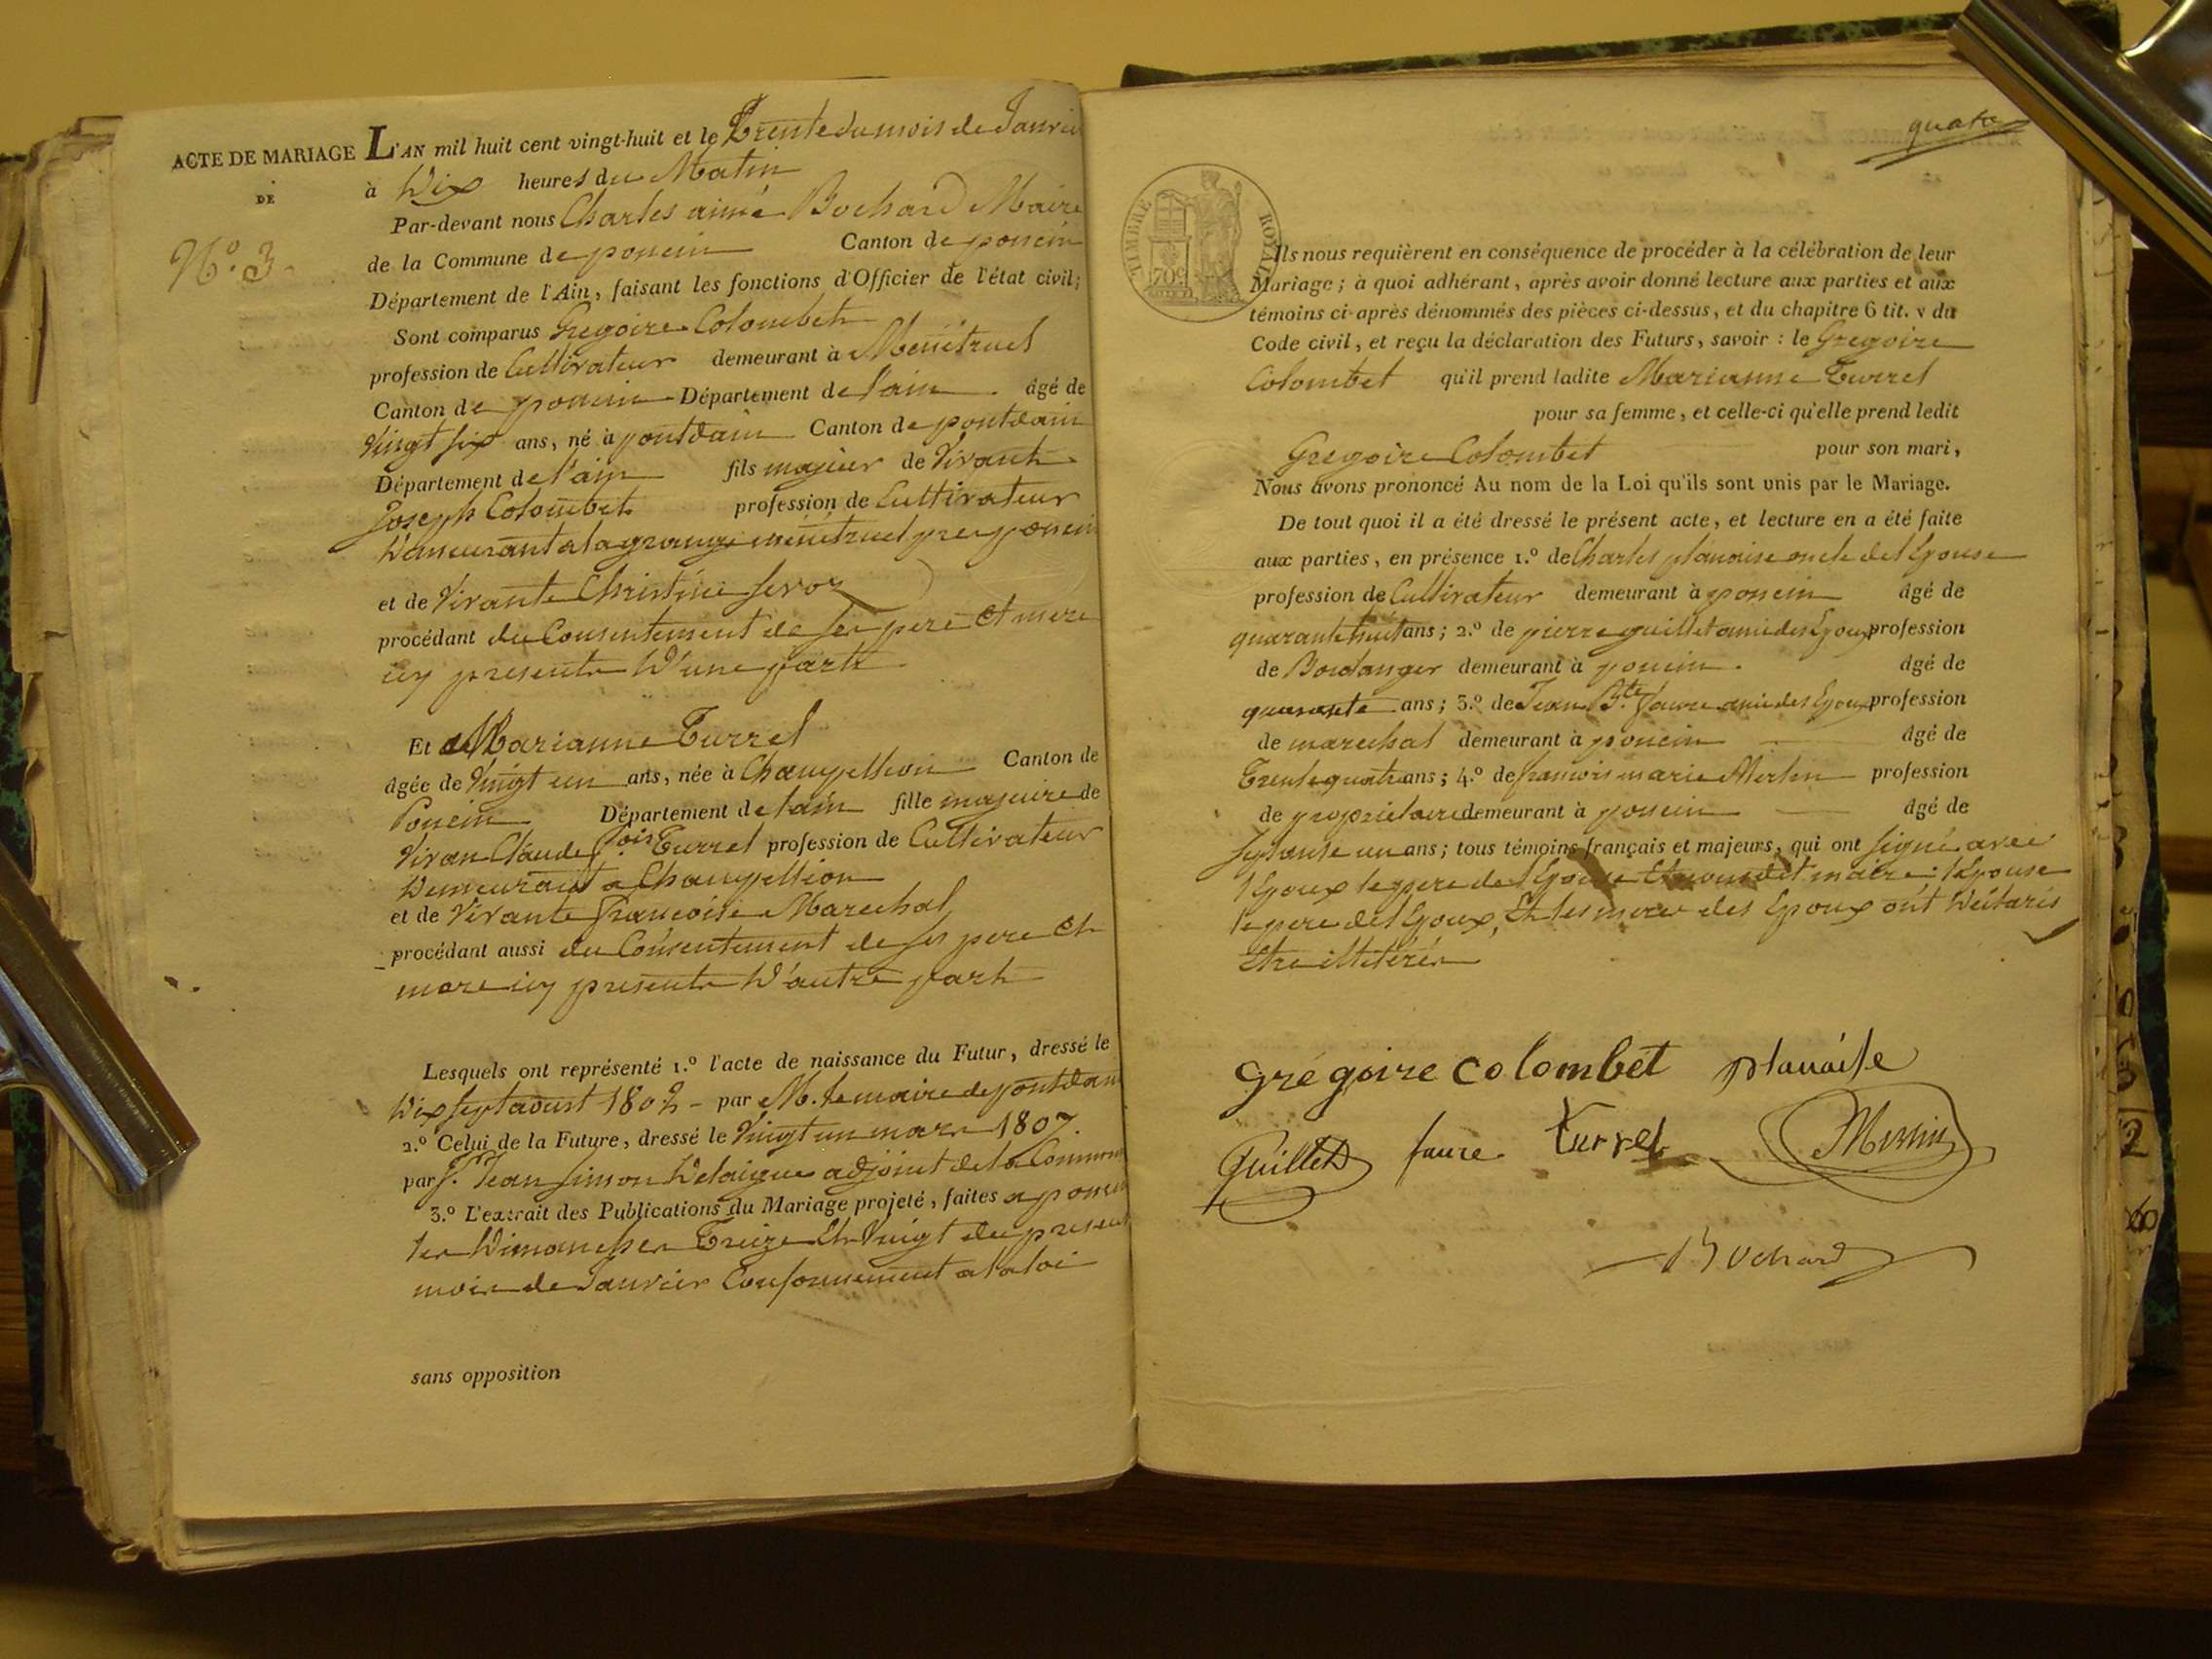 ACTE DE MARIAGE
DE
N.o 3
L'AN mil huit cent vingt-huit et le Trente du mois de Janvier
à Dix heures du Matin
Par-devant nous Charles aimé Bochard Maire
de la Commune de poncin Canton de poncin
Département de l'Ain, faisant les fonctions d'Officier de l'état civil;
Sont comparus Gregoire Colombet
profession de Cultivateur demeurant à Menétruel
Canton de poncin Département de l'ain âgé de
vingt six ans, né à pontdain Canton de pontdain
Département de l'ain fils majeur de vivant
Joseph Colombet profession de Cultivateur
Demeurant a la grange menétruel pres poncin
et de vivante Christine
procédant du Consentement de ses pere et mere
icy presents D'une part
Et de Marianne Turrel
âgée de vingt un ans, née à Champellion Canton de
Poncin Département de lain fille majeure de
vivan Claude fois Turrel profession de Cultivateur
Demeurant a Champellion
et de vivante françoise Marechal
procédant aussi du Consentement de ses pere et
mere icy presents D'autre part
Lesquels ont représenté 1.º l'acte de naissance du Futur, dressé le
Dix sept aoust 1802 - par M. le maire de pontdain
2.º Celui de la Future, dressé le vingt un mars 1807.
par S. Jean simon Delaigue adjoint de la Commune
3.º L'extrait des Publications du Mariage projeté, faites a poncin
les Dimanches Treize et vingt du present
mois de Janvier Conformement a la loi
sans opposition
quatre
TIMBRE ROYAL
70 c
Ils nous requièrent en conséquence de procéder à la célébration de leur
Mariage; à quoi adhérant, après avoir donné lecture aux parties et aux
témoins ci-après dénommés des pièces ci-dessus, et du chapitre 6 tit. v du
Code civil, et reçu la déclaration des Futurs, savoir : le Gregoire
Colombet qu'il prend ladite Marianne Turrel
pour sa femme, et celle-ci qu'elle prend ledit
Gregoire Colombet pour son mari,
Nous avons prononcé Au nom de la Loi qu'ils sont unis par le Mariage.
De tout quoi il a été dressé le présent acte, et lecture en a été faite
aux parties, en présence 1.º de Charles planaise oncle de lEpouse
profession de Cultivateur demeurant à poncin âgé de
quarante huit ans; 2.º de pierre guillet ami des Epoux profession
de Boulanger demeurant à poncin. âgé de
quarante ans; 3.º de Jean Bte faure ami des Epoux profession
de marechal demeurant à poncin âgé de
Trente quatre ans; 4.º de francois marie Merlin profession
de proprietaire demeurant à poncin âgé de
soixante un ans; tous témoins français et majeurs, qui ont signé avec
lEpoux le pere de lEpouse Et nous dit maire. lEpouse
le pere de lEpoux, Et les meres des Epoux ont Déclarés
Etre illetérés
grégoire colombet planaise
Guillet faure turrel Merlin
Bochard